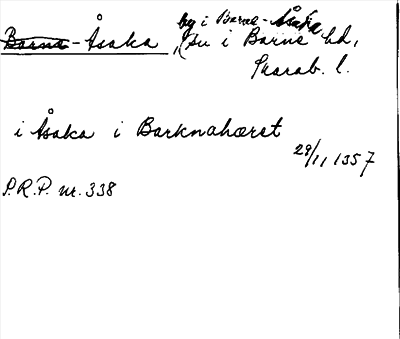 by i Barne-Åsaka
Barna-Åsaka, (su i Barne hd,
Skarab. l.
i Åsaka i Barknahæret
29/11 1357
P.R.P. nr. 338